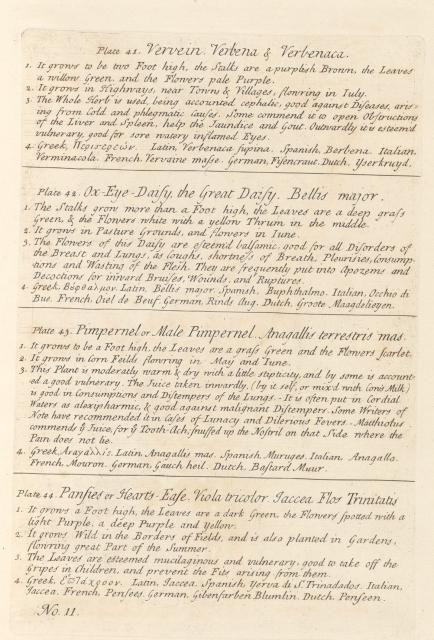 Plate 41. Vervein. Verbena & Verbenaca.
1. It grows to be two Foot high, the Stalks are a purplish Brown, the Leaves
a willow Green, and the Flowers pale Purple.
2. It grows in Highways, near Towns & Villages, flowring in Iuly.
3. The Whole Herb is used, being accounted cephalic, good against Diseases, aris-
ing from Cold and phlegmatic causes. Some commend it to open Obstructions
of the Liver and Spleen, help the Jaundice and Gout. Outwardly it is esteem'd
vulnerary, good for sore watery inflamed Eyes.
4. Greek, Latin, Verbena supina. Spanish, Berbena. Italian,
Verminacola. French, Vervaine masle. German, Eisencraut. Dutch, Yserkruyd.
Plate 42. Ox-Eye-Daisy, the Great Daisy. Bellis major.
1. The Stalks grow more than a Foot high, the Leaves are a deep grass
Green, & the Flowers white with a yellow Thrum in the middle.
2. It grows in Pasture Grounds, and flowers in Iune.
3. The Flowers of this Daisy are esteem'd balsamic, good for all Disorders of
the Breast and Lungs, as coughs, shortness of Breath, Plourisies, Consump-
-tions and Wasting of the Flesh. They are frequently put into Apozems and
Decoctions for inward Bruises, Wounds, and Ruptures.
4. Greek, Latin, Bellis major. Spanish, Buphthalmo. Italian, Occhio di
Bue. French, Oiel de Beuf. German, Rinds Aug. Dutch, Groote Maagdelieven.
Plate 43. Pimpernel or Male Pimpernel. Anagallis terrestris mas.
1. It grows to be a Foot high, the Leaves are a grass Green and the Flowers scarlet.
2. It grows in Corn Feilds flowring in May and Iune.
3. This Plant is moderatly warm & dry with a little stipticity, and by some is account-
ed a good vulnerary. The Juice taken inwardly, (by it self, or mix'd with Cows Milk)
is good in Consumptions and Distempers of the Lungs. It is often put in Cordial
Waters as alexipharmic, & good against malignant Distempers. Some Writers of
Note have recommended it in Cases of Lunacy and Dilerious Fevers. Matthiolus
commends ye Juice, for ye Tooth-Ach, snuffed up the Nostril on that Side where the
Pain does not lie.
4. Greek, Latin, Anagallis mas. Spanish, Muruges. Italian, Anagallo.
French, Mouron. German, Gauch heil. Dutch, Bastard Muur.
Plate 44. Pansies or Hearts-Ease. Viola tricolor. Jaccea. Flos Trinitatis
1. It grows a Foot high, the Leaves are a dark Green, the Flowers spotted with a
light Purple, a deep Purple and Yellow.
2. It grows Wild in the Borders of Fields, and is also planted in Gardens,
flowring great Part of the Summer.
3. The Leaves are esteemed mucilaginous and vulnerary, good to take off the
Gripes in Children, and prevent the Fits arising from them.
4. Greek, Latin, Jaccea. Spanish, Yerva di S. Trinadados. Italian,
Jaccea. French, Pensees. German, Blumlin. Dutch, Penseen.
No. 11.